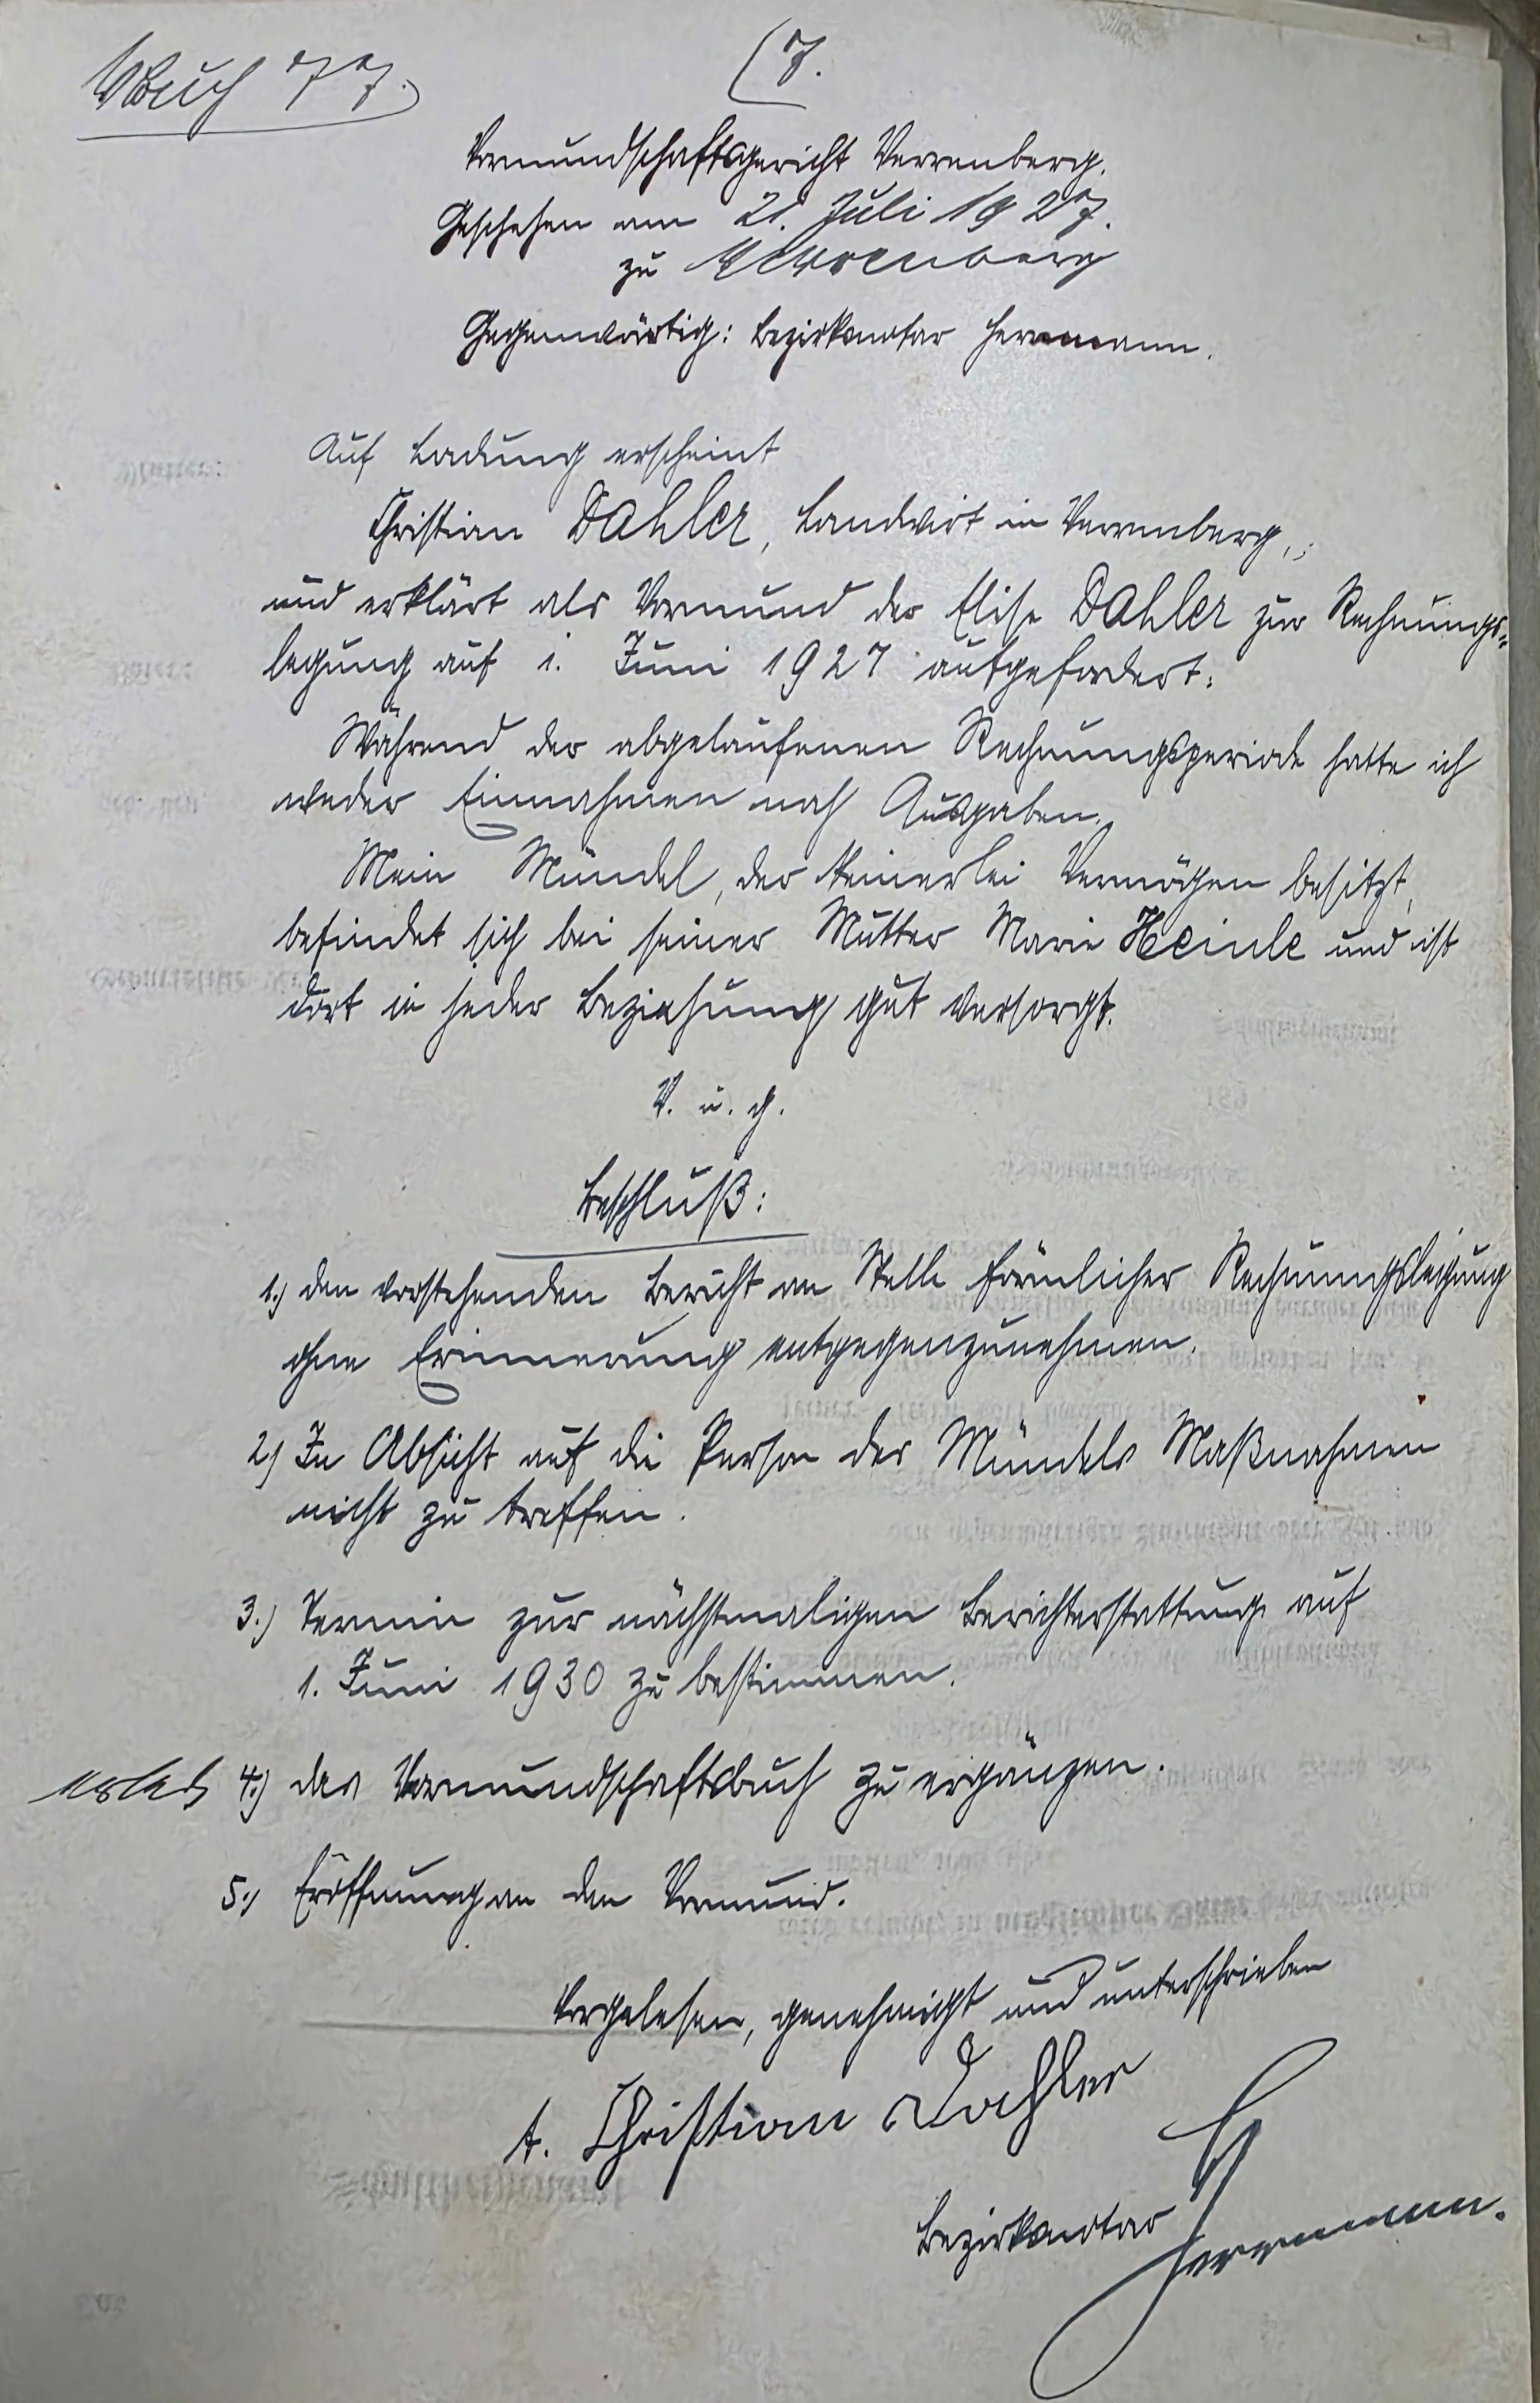 VBuch 77.
(7.
Vormundschaftsgericht Verrenberg.
Geschehen am 21. Juli 1927.
zu Verrenberg
Gegenwärtig: Bezirksnotar Herrmann.
Auf Ladung erscheint
Christian Dahler, Landwirt in Verrenberg,
und erklärt als Vormund der Elise Dahler zur Rechnungs-
legung auf 1. Juni 1927 aufgefordert:
Während der abgelaufenen Rechnungsperiode hatte ich
weder Einnahmen noch Ausgaben.
Mein Mündel, der keinerlei Vermögen besitzt,
befindet sich bei seiner Mutter Marie Heinle und ist
dort in jeder Beziehung gut versorgt.
V. u. g.
Beschluß:
1.) den vorstehenden Bericht an Stelle förmlicher Rechnungslegung
ohne Erinnerung entgegenzunehmen.
2.) In Absicht auf die Person des Mündels Maßnahmen
nicht zu treffen.
3.) Termin zur nächstmaligen Berichterstattung auf
1. Juni 1930 zu bestimmen.
4.) das Vormundschaftsbuch zu ergänzen.
5.) Eröffnung an den Vormund.
Vorgelesen, genehmigt und unterschrieben
t. Christian Dahler
Bezirksnotar Herrmann.